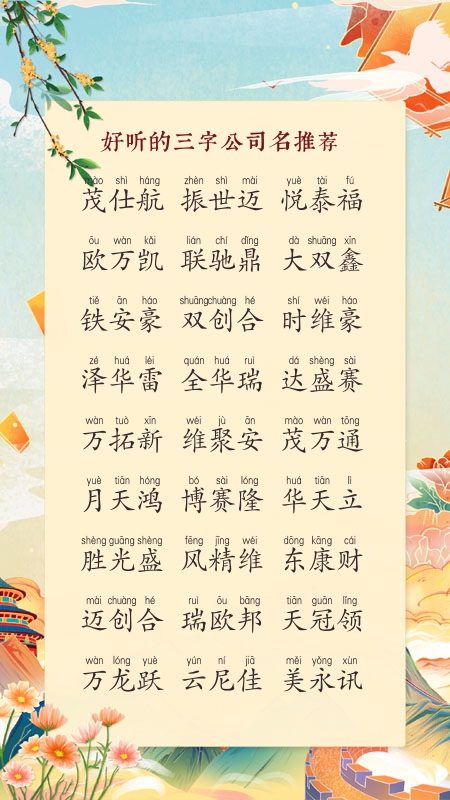 好听的三字公司名推荐
mào shì háng zhèn shì mài yuè tài fú
茂仕航 振世迈 悦泰福
ōu wàn kǎi lián chí dǐng dà shuāng xīn
欧万凯 联驰鼎 大双鑫
tiě ān háo shuāng chuàng hé shí wéi háo
铁安豪 双创合 时维豪
zé huá léi quán huá ruì dá shèng sài
泽华雷 全华瑞 达盛赛
wàn tuò xīn wéi jù ān mào wàn tōng
万拓新 维聚安 茂万通
yuè tiān hóng bó sài lóng huá tiān lì
月天鸿 博赛隆 华天立
shèng guāng shèng fēng jīng wéi dōng kāng cái
胜光盛 风精维 东康财
mài chuàng hé ruì ōu bāng tiān guān lǐng
迈创合 瑞欧邦 天冠领
wàn lóng yuè yún ní jiā měi yǒng xùn
万龙跃 云尼佳 美永讯